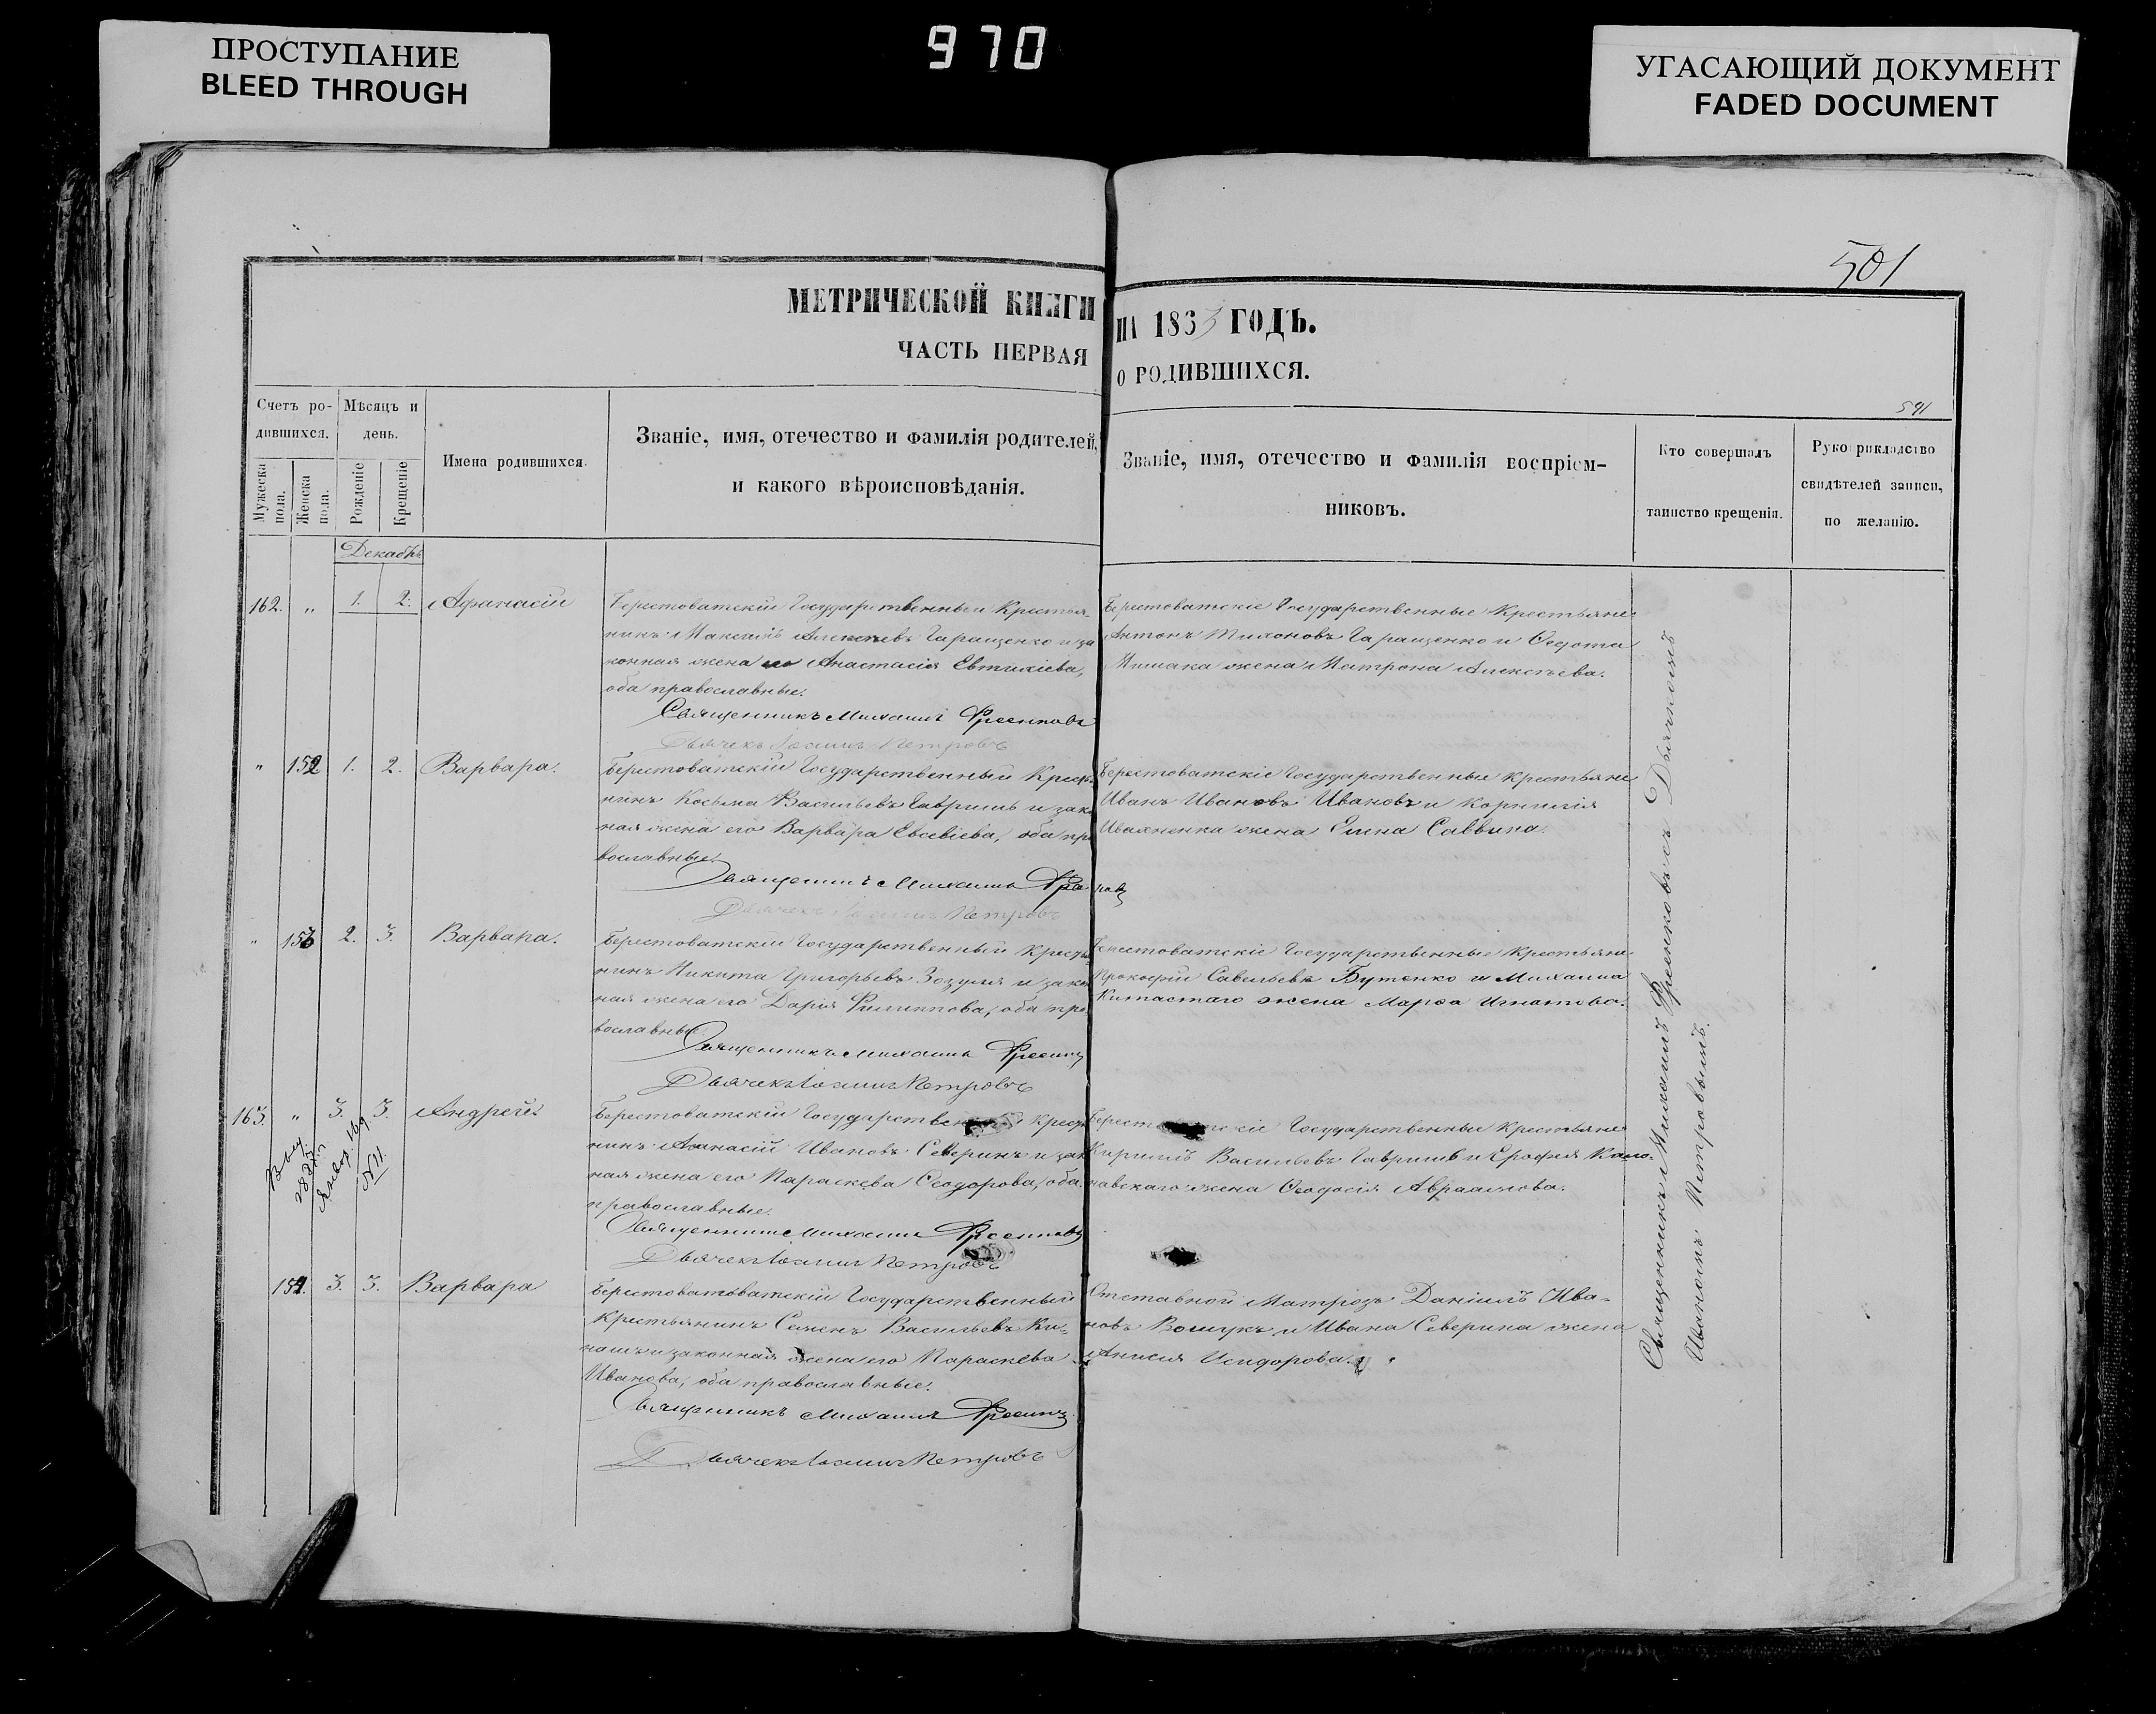 ПРОСТУПАНИЕ
BLEED THROUGH
970
УГАСАЮЩИЙ ДОКУМЕНТ
FADED DOCUMENT
501
МЕТРИЧЕСКОЙ КНИГИ
НА 1863 ГОДЪ.
ЧАСТЬ ПЕРВАЯ
О РОДИВШИХСЯ.
591
Счетъ ро-
дившихся.
Мужеска
пола.
Женска
пола.
Мѣсяцъ и
день.
Рожденіе
Крещеніе
Имена родившихся.
Званіе, имя, отечество и фамилія родителей,
и какого вѣроисповѣданія.
Званіе, имя, отечество и фамилія воспріем-
никовъ.
Кто совершалъ
таинство крещенія.
Рукоприкладство
свидѣтелей записи,
по желанію.
Декабрь
162. " 1. 2. Афанасій
Берестоватскій Государственный Крестья-
нинъ Максимъ Алексѣевъ Гаращенко и за
конная жена его Анастасія Евтихіева,
оба православные.
Священникъ Михаилъ
Дьячекъ Іоаннъ Петровъ
Берестоватскіе Государственные Крестьяне
Антонъ Тихоновъ Гаращенко и Ѳедота
жена Матрона Алексѣева.
" 152 1. 2. Варвара.
Берестоватскій Государственный Крестья
нинъ Косьма Васильевъ Гавришъ и зако
ная жена его Варвара Евсевіева, оба пра
вославные.
Священникъ Михаилъ
Дьячекъ Іоаннъ Петровъ
Берестоватскіе Государственные Крестьяне
Иванъ Ивановъ Ивановъ и Корнилія
Иваненка жена Елена Саввина.
" 153 2. 3. Варвара.
Берестоватскій Государственный Крестья
нинъ Никита Григорьевъ Зозуля и закон
ная жена его Дарія Филиппова, оба пра
вославные.
Священникъ Михаилъ
Дьячекъ Іоаннъ Петровъ
Берестоватскіе Государственные Крестьяне
Прокофій Савельевъ Бутенко и Михаила
Китастаго жена Марѳа Игнатова.
163. " 3. 3. Андрей
Берестоватскій Государственный Крестья
нинъ Аѳанасій Ивановъ Северинъ и закон
ная жена его Параскева Ѳеодорова, оба
православные.
Священникъ Михаилъ
Дьячекъ Іоаннъ Петровъ
Берестоватскіе Государственные Крестьяне
Кириллъ Васильевъ Гавришъ и Ерофея
жена Ѳеодосія Авраамова.
154. 3. 3. Варвара
Государственный
Крестьянинъ Семенъ Васильевъ
и законная жена его Параскева
Иванова, оба православные.
Священникъ Михаилъ
Дьячекъ Іоаннъ Петровъ
Отставной Матрозъ Даніилъ Ива-
новъ и Ивана Северина жена
Анисія Исидорова.
Священникъ Михаилъ съ Дьячкомъ
Иваномъ Петровымъ.